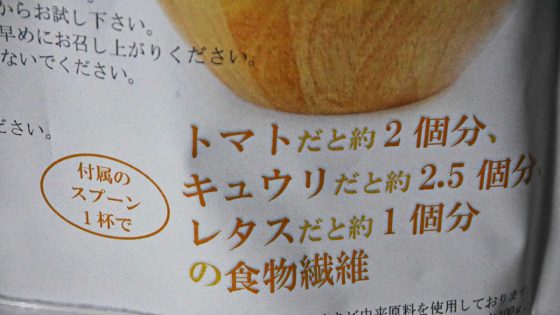 からお試し下さい。
早めにお召し上がりください。
ないでください。
ださい。
付属の
スプーン
1杯で
トマトだと約2個分、
キュウリだと約2.5個分、
レタスだと約1個分
の食物繊維
由来原料を使用しております